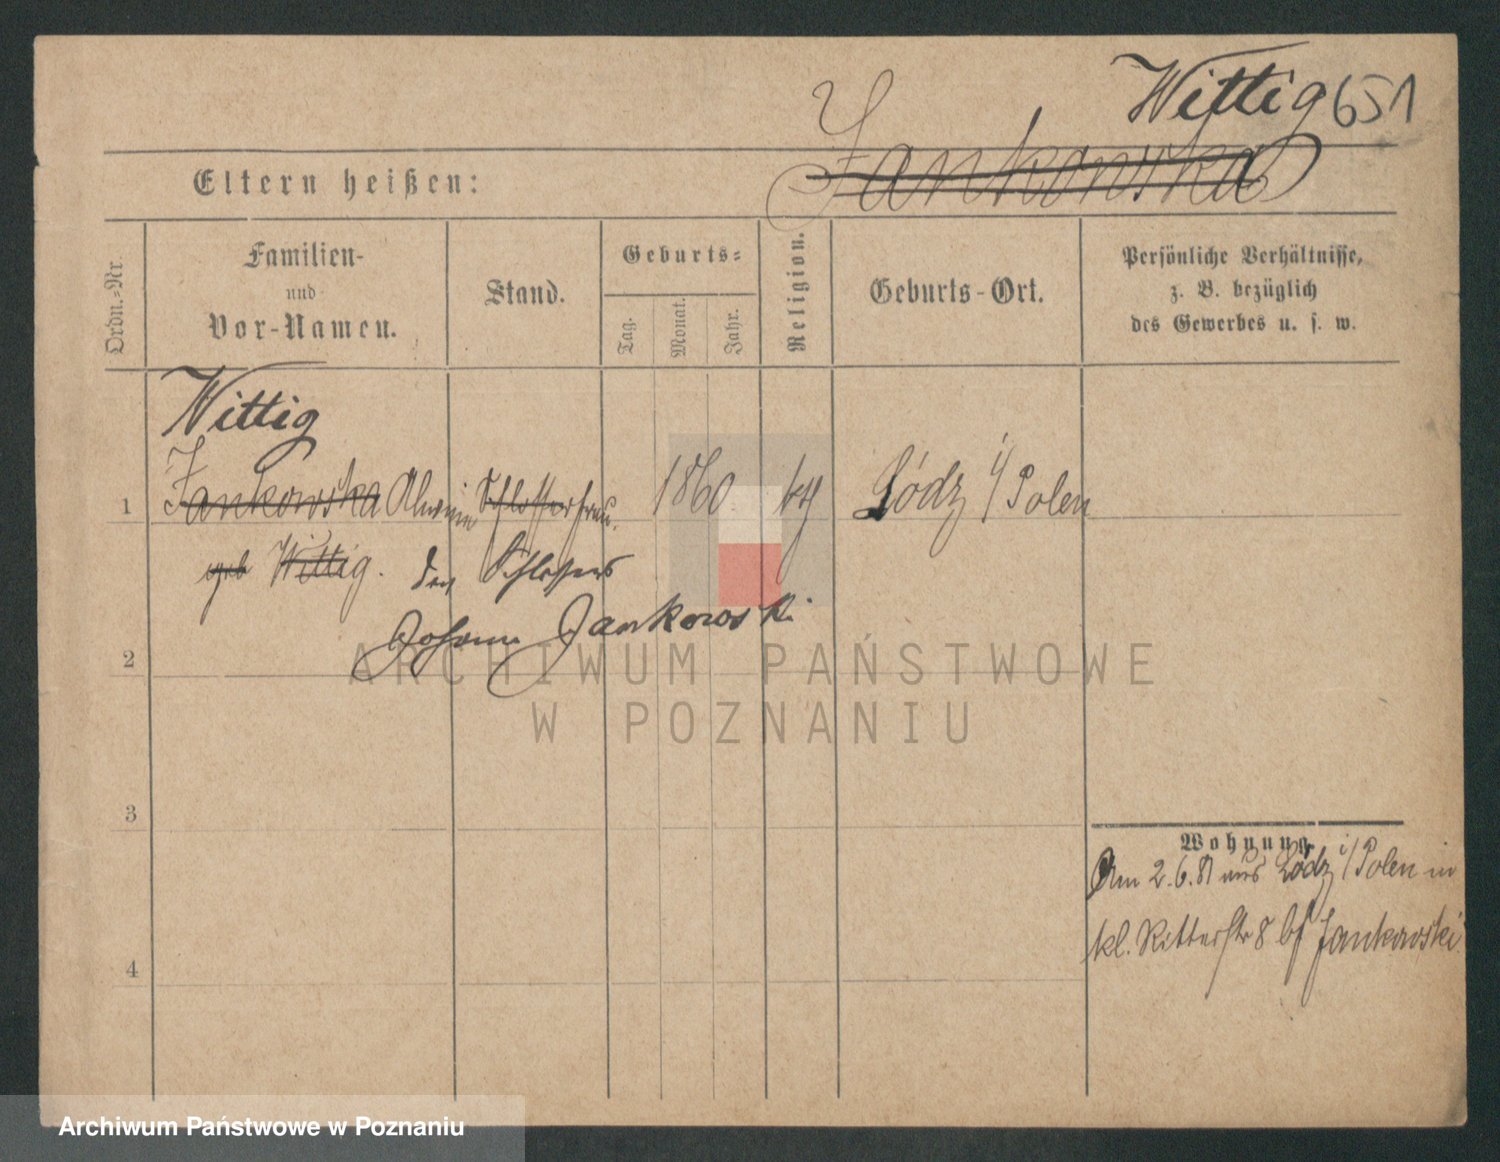 Wittig 651
Jankowska
Eltern heißen:
Ordn.-Nr.
Familien-
und
Vor-Namen.
Stand.
Geburts-
Tag.
Monat.
Jahr.
Religion.
Geburts-Ort.
Persönliche Verhältnisse,
z. B. bezüglich
des Gewerbes u. s. w.
Wittig
1 Jankowska Alwine Schlosserfrau. 1860 kth Łódz i/Polen
geb Wittig. des Schlossers
Johann Jankowski
2
3
4
Wohnung
Am 2.6.81 aus Łódz i/Polen in
kl. Ritterstr 8 bf Jankowski
ARCHIWUM PAŃSTWOWE
W POZNANIU
Archiwum Państwowe w Poznaniu